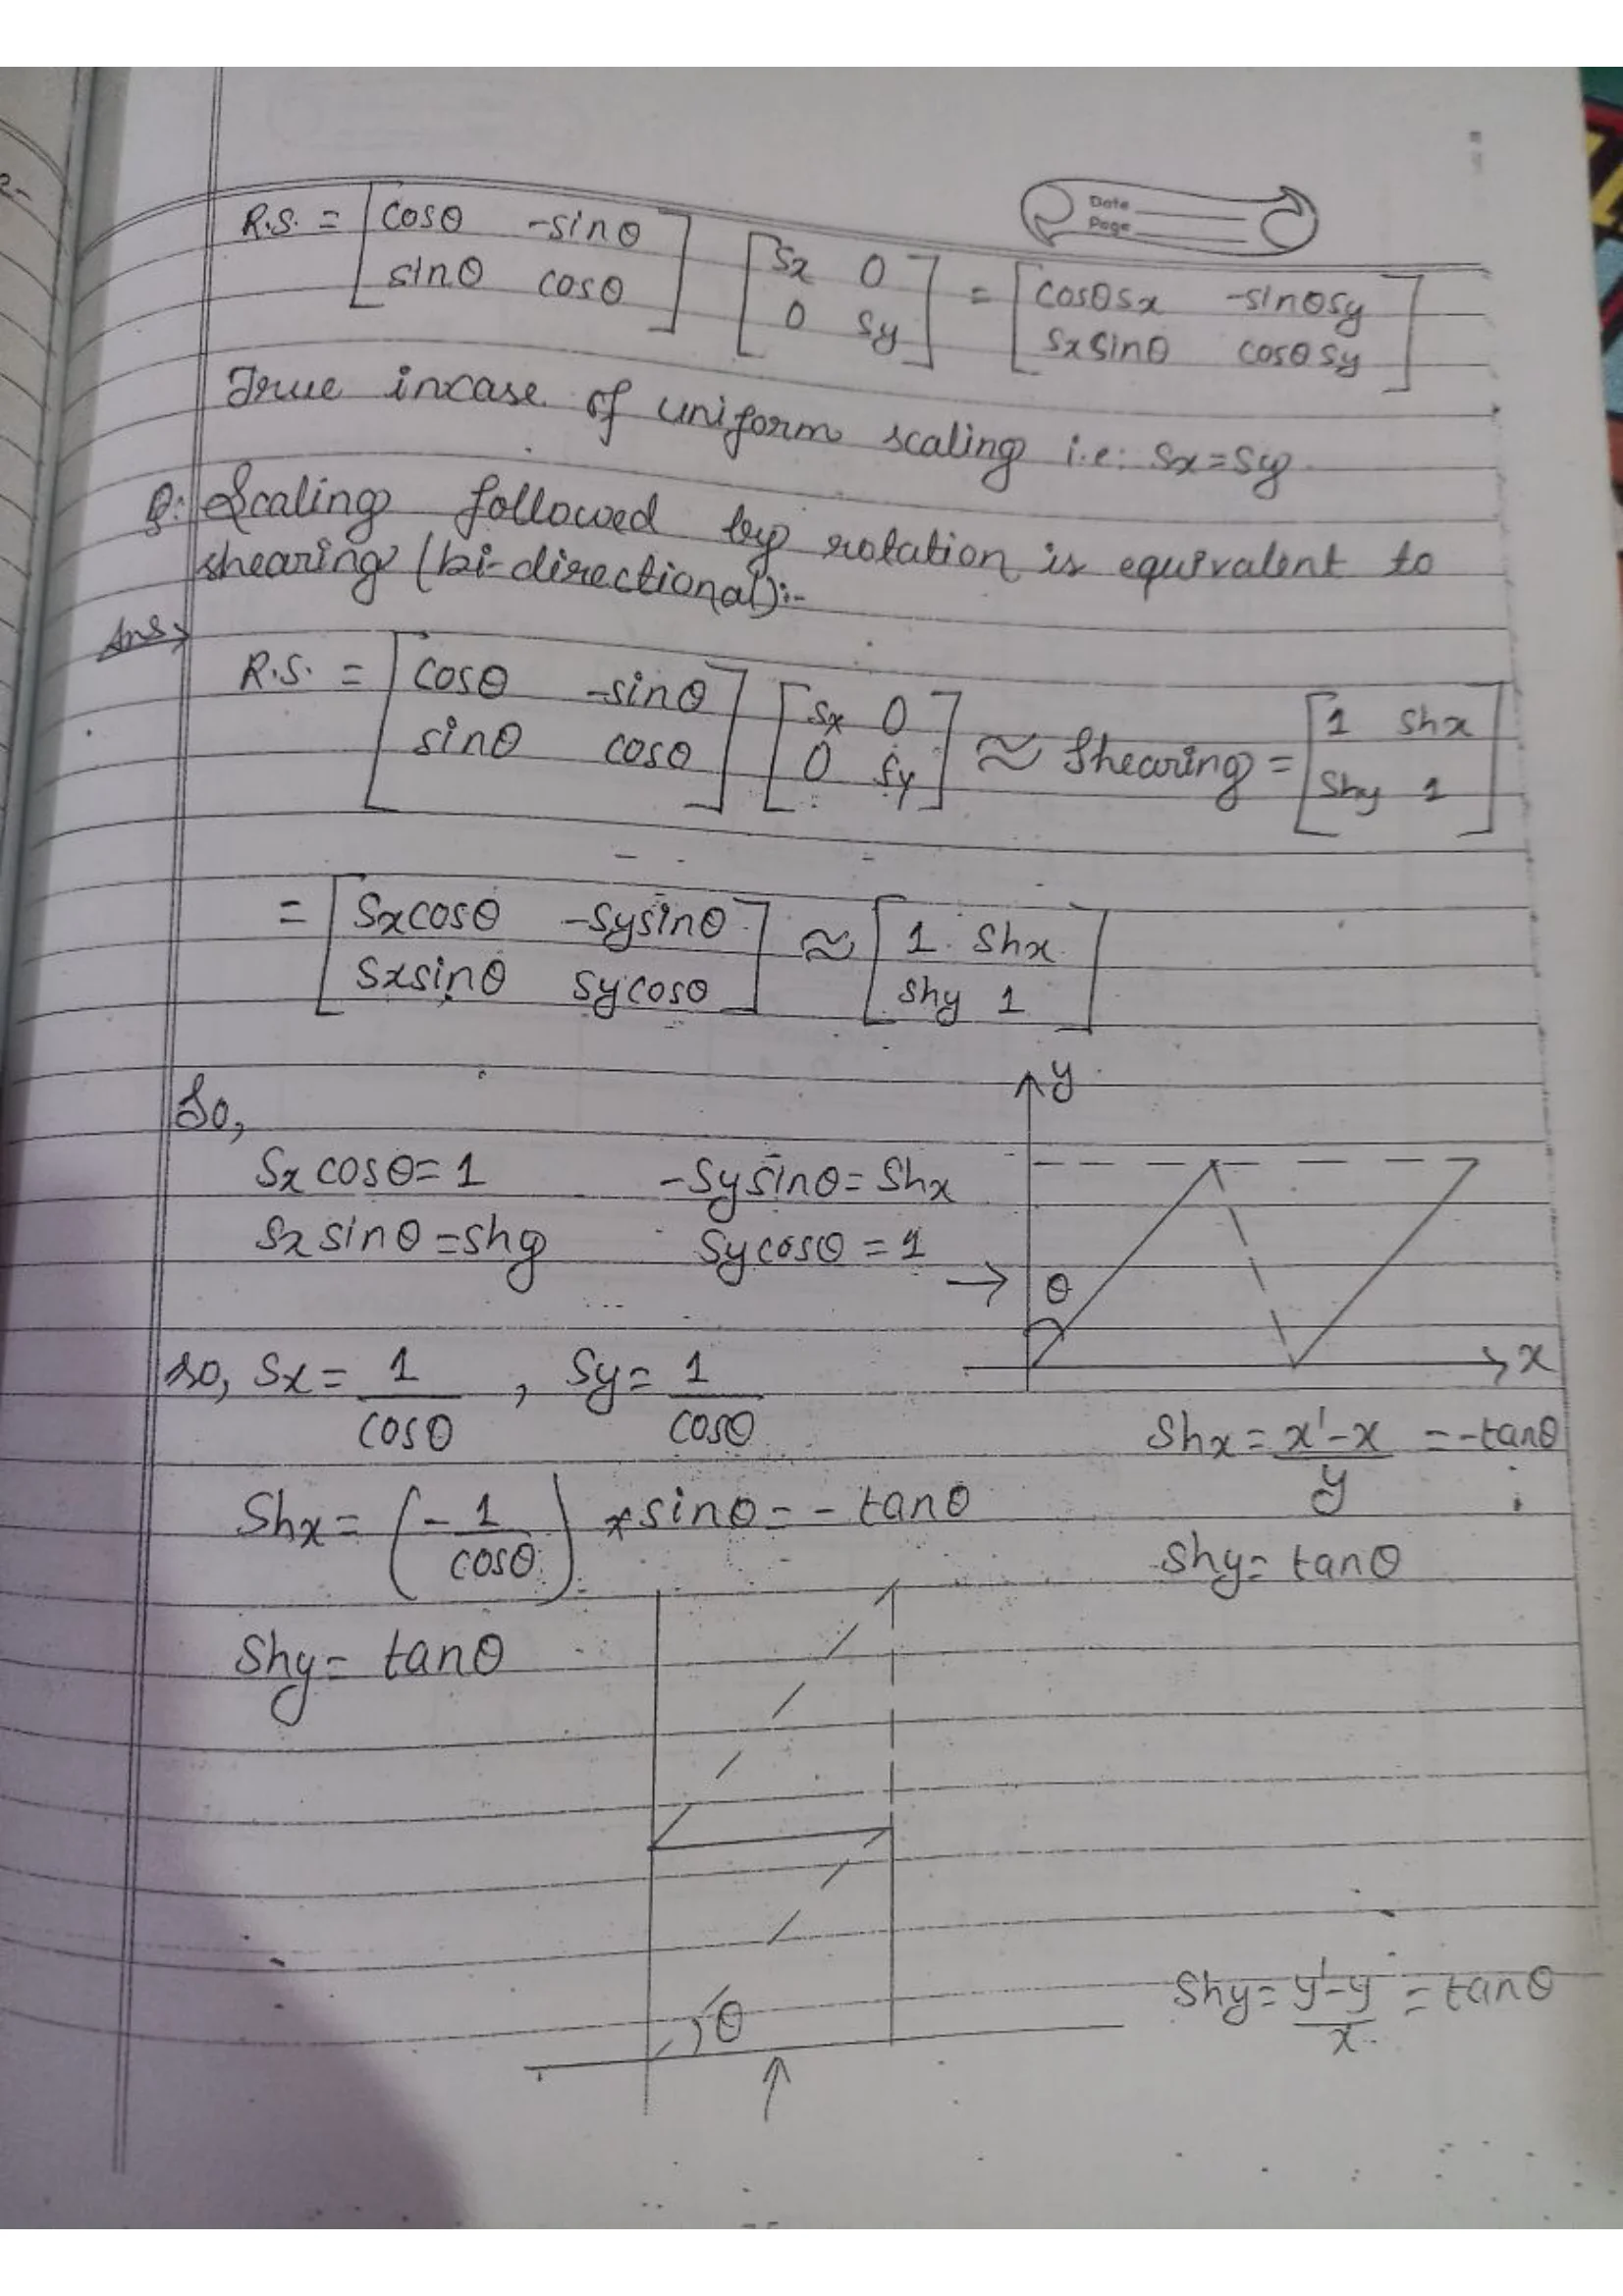 Date
Page
R.S. = [cosθ -sinθ; sinθ cosθ] [Sx 0; 0 Sy] = [cosθSx -sinθSy; SxSinθ cosθSy]
True incase of uniform scaling i.e: Sx=Sy
Q: Scaling followed by rotation is equivalent to
shearing (bi-directional):-
Ans→
R.S. = [cosθ -sinθ; sinθ cosθ] [Sx 0; 0 Sy] ≈ Shearing = [1 Shx; Shy 1]
= [Sxcosθ -Sysinθ; Sxsinθ Sycosθ] ≈ [1 Shx; Shy 1]
So,
Sx cosθ=1 -Sysinθ=Shx
Sx sinθ=Shy Sycosθ=1 →
y
θ
x
so, Sx= 1/cosθ , Sy= 1/cosθ
Shx = (x'-x)/y = -tanθ
Shx= (-1/cosθ) * sinθ = - tanθ
Shy= tanθ
Shy= tanθ
θ
Shy= (y'-y)/x = tanθ